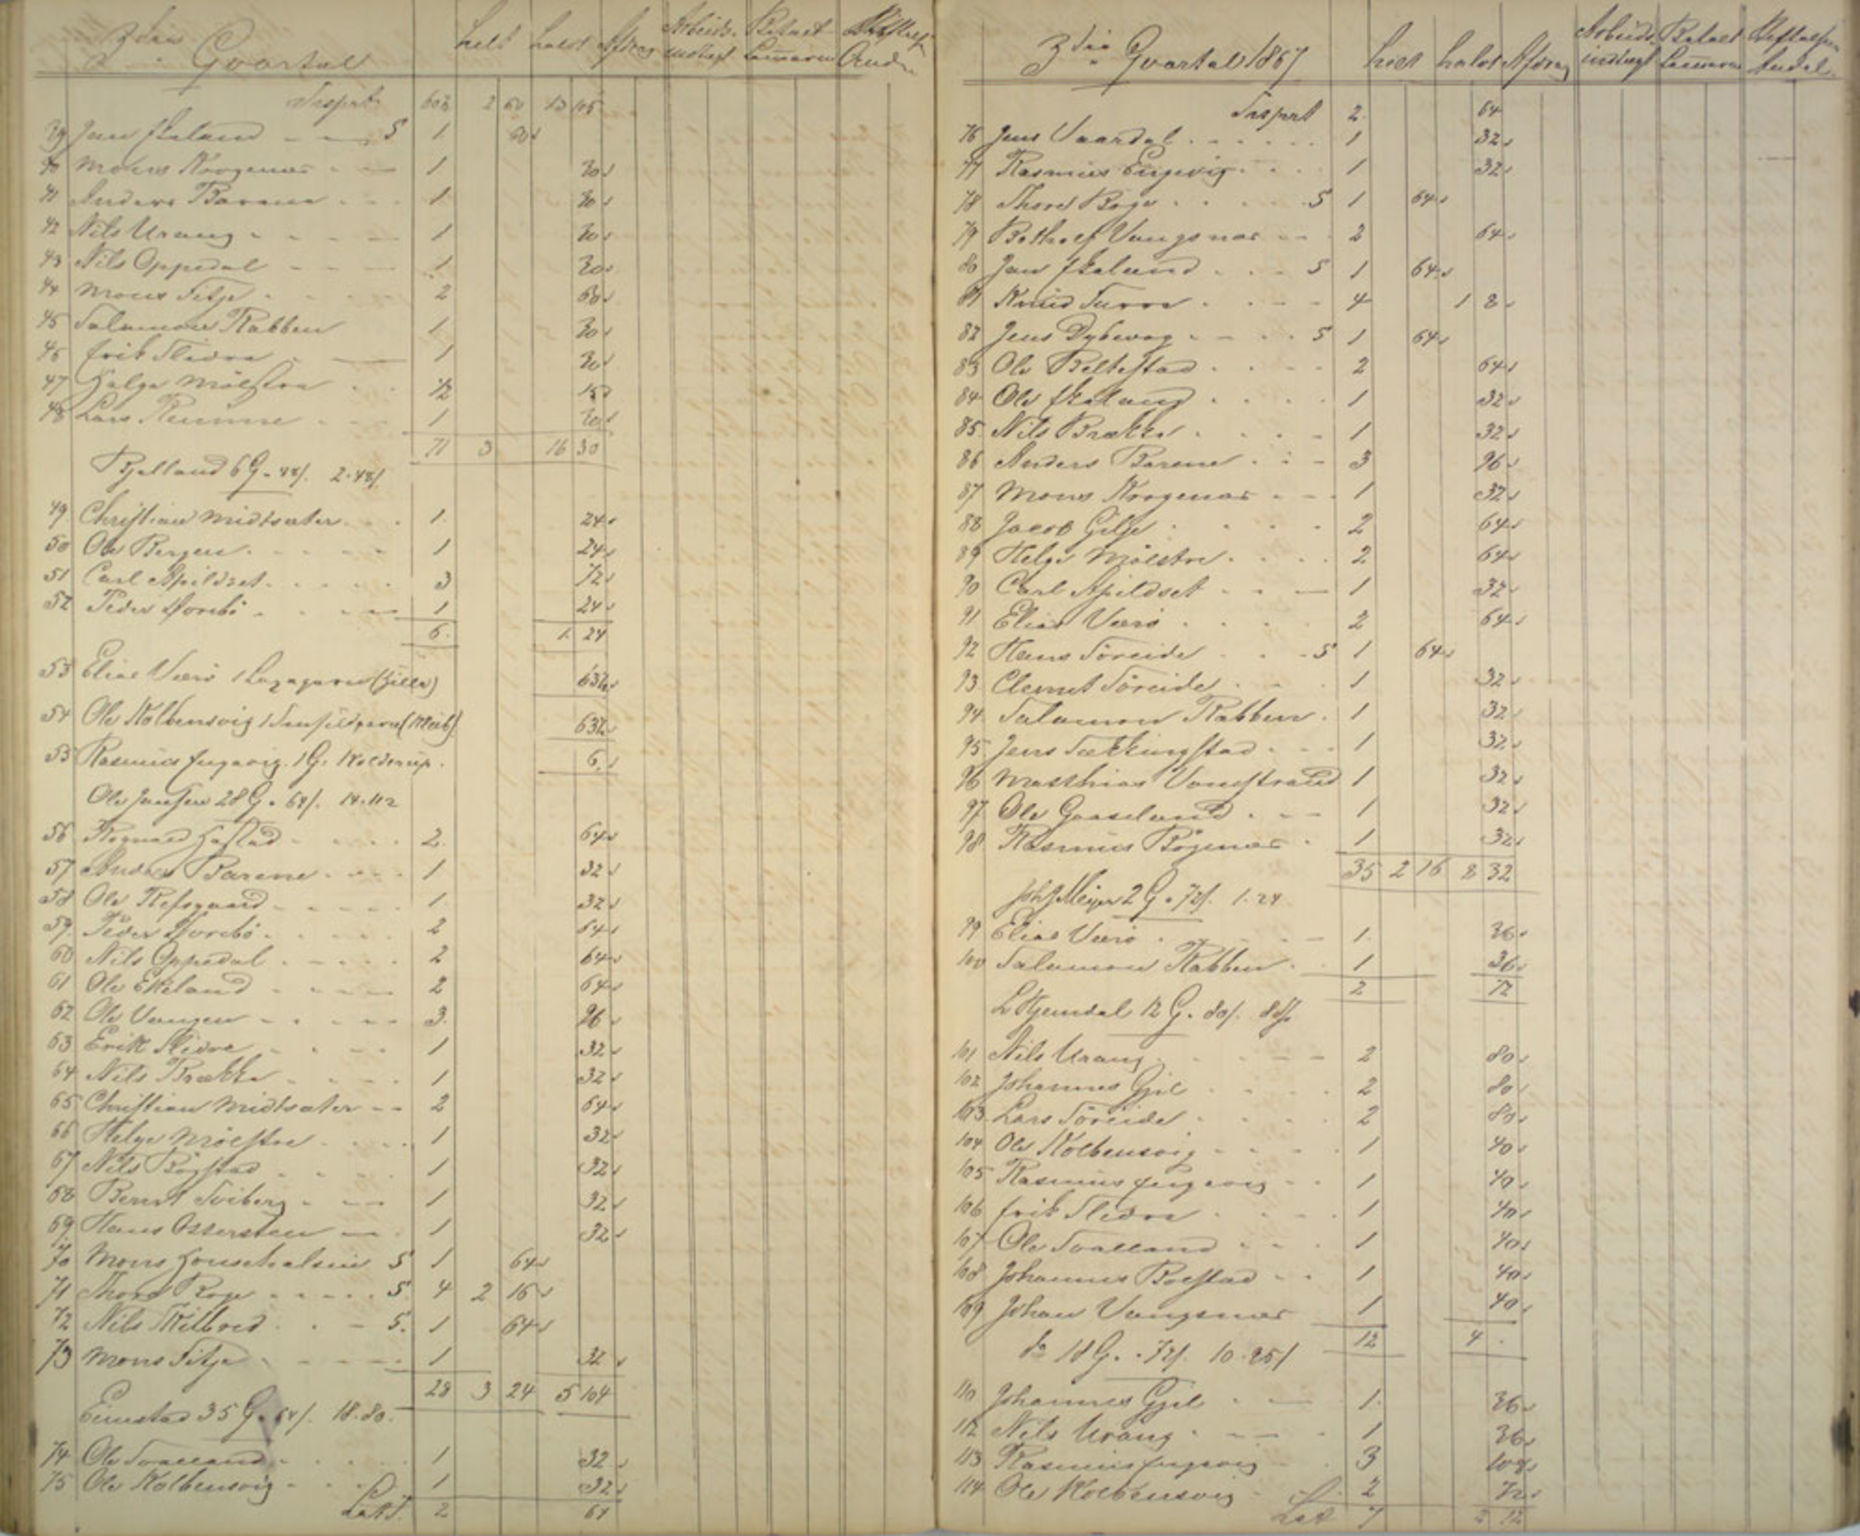 3die Qvartal helt halvt Afdrag Arbeids- indtægt Betalt
Trsprt. 60½ 2 60 13 105
39 Jan Ekeland 5 1 60
40 Mons Krogenæs 1 30
41 Anders Barene 1 30
42 Nils Urang 1 30
43 Nils Oppedal 1 30
44 Mons Fitje 2 60
45 Salamon Rabben 1 30
46 Erik Flidre 1 30
47 Helge Mölstre ½ 15
48 Lars 1 30
71 3 16 30
Bjelland 6 G. 48/. 2.48/.
49 Christian Midtsæter 1 24
50 Ole Bergen 1 24
51 Carl Apildset 3 72
52 Peder Horebö 1 24
6 1 24
53 Elias Værö 1
54 Ole Kolbensvig 1
55 Rasmus Engevig 1 G. Kolderup. 6
Ole Jansen 28 G. 64/. 14.112
56 2 64
57 Anders Barene 1 32
58 Ole Refsgaard 1 32
59 Peder Horebö 2 64
60 Nils Oppedal 2 64
61 Ole Ekeland 2 64
62 Ole Vangen 3 96
63 Erik Flidre 1 32
64 Nils Brække 1 32
65 Christian Midtsæter 2 64
66 Helge Mölstre 1 32
67 Nils Bögstad 1 32
68 Bernt Tviberg 1 32
69 Hans Ossersteen 1 32
70 Mons 5 1 64
71 Thord Roge 5 4 2 16
72 Nils Skilbred 5 1 64
73 Mons Fitje 1 32
28 3 24 5 104
Eimstad 35 G. 64/. 18.80.
74 Ole Tvalland 1 32
75 Ole Kolbensvig 1 32
Lat. 2 64
3die Qvartal 1867 helt halvt Afdrag Arbeids indtægt Betalt
Trsprt 2 64
76 Jens Vaardal 1 32
77 Rasmus Engevig 1 32
78 Thord Roge 5 1 64
79 Botholf Vangsnæs 2 64
80 Jan Ekeland 5 1 64
81 Knud Turre 4 1 8
82 Jens Dybevog 5 1 64
83 Ole Beltestad 2 64
84 Ole Ekeland 1 32
85 Nils Brække 1 32
86 Anders Barene 3 96
87 Mons Krogenæs 1 32
88 Jacob Gilje 2 64
89 Helge Mölstre 2 64
90 Carl Apildset 1 32
91 Elias Værö 2 64
92 Hans Töreide 5 1 64
93 Clemet Töreide 1 32
94 Salamon Rabben 1 32
95 Jens Tækkingstad 1 32
96 Matthias Vandstrand 1 32
97 Ole Gaaseland 1 32
98 Rasmus Bögenæs 1 32
35 2 16 8 32
Joh J Meyer 2 G. 72/. 1.24
99 Elias Værö 1 36
100 Salamon Rabben 1 36
2 72
L Hjemdal 12 G. 80/. 8
101 Nils Urang 2 80
102 Johannes Gjil 2 80
103 Lars Töreide 2 80
104 Ole Kolbensvig 1 40
105 Rasmus Engevig 1 40
106 Erik Flidre 1 40
107 Ole Tvalland 1 40
108 Johannes Bolstad 1 40
109 Johan Vangsnæs 1 40
12 4
do 18 G. 72/.
110 Johannes Gjil 1 36
112 Nils Urang 1 36
113 Rasmus Engevig 3 108
114 Ole Kolbensvig 2 72
Lat 7 2 12